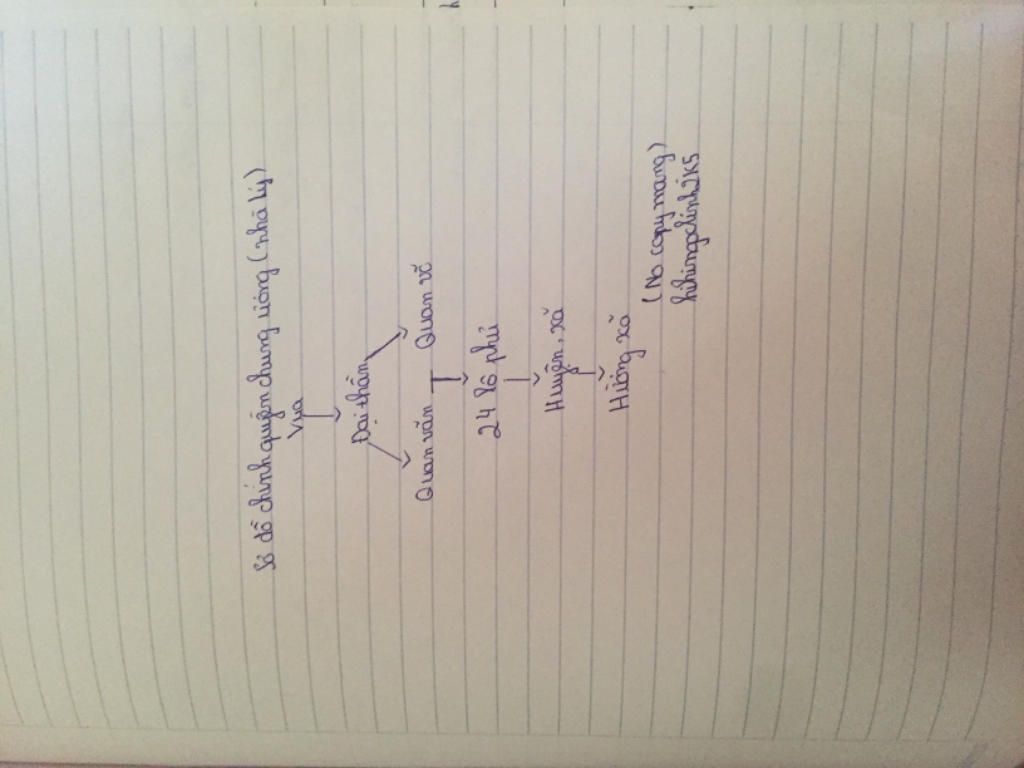 Sơ đồ chính quyền chung ương (nhà Lý)
Vua
Đại thần
Quan văn Quan võ
24 lộ phủ
Huyện, xã
Hương xã
(No copy mạng)